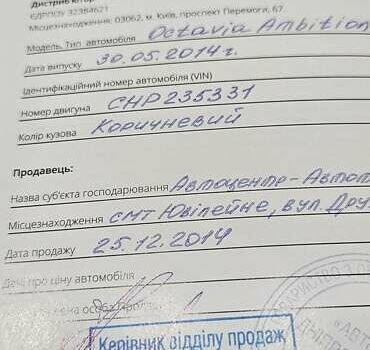 ЄДРПОУ 32384621
Місцезнаходження: 03062, м. Київ, проспект Перемоги, 67
Модель. Тип автомобіля Octavia Ambition
Дата випуску 30.05.2014 г.
Ідентифікаційний номер автомобіля (VIN)
Номер двигуна CHP235331
Колір кузова Коричневий
Продавець:
Назва суб'єкта господарювання Автоцентр-Автот
Місцезнаходження смт Ювілейне, вул. Дру
Дата продажу 25.12.2014
Дані про ціну автомобіля
Керівник відділу продаж